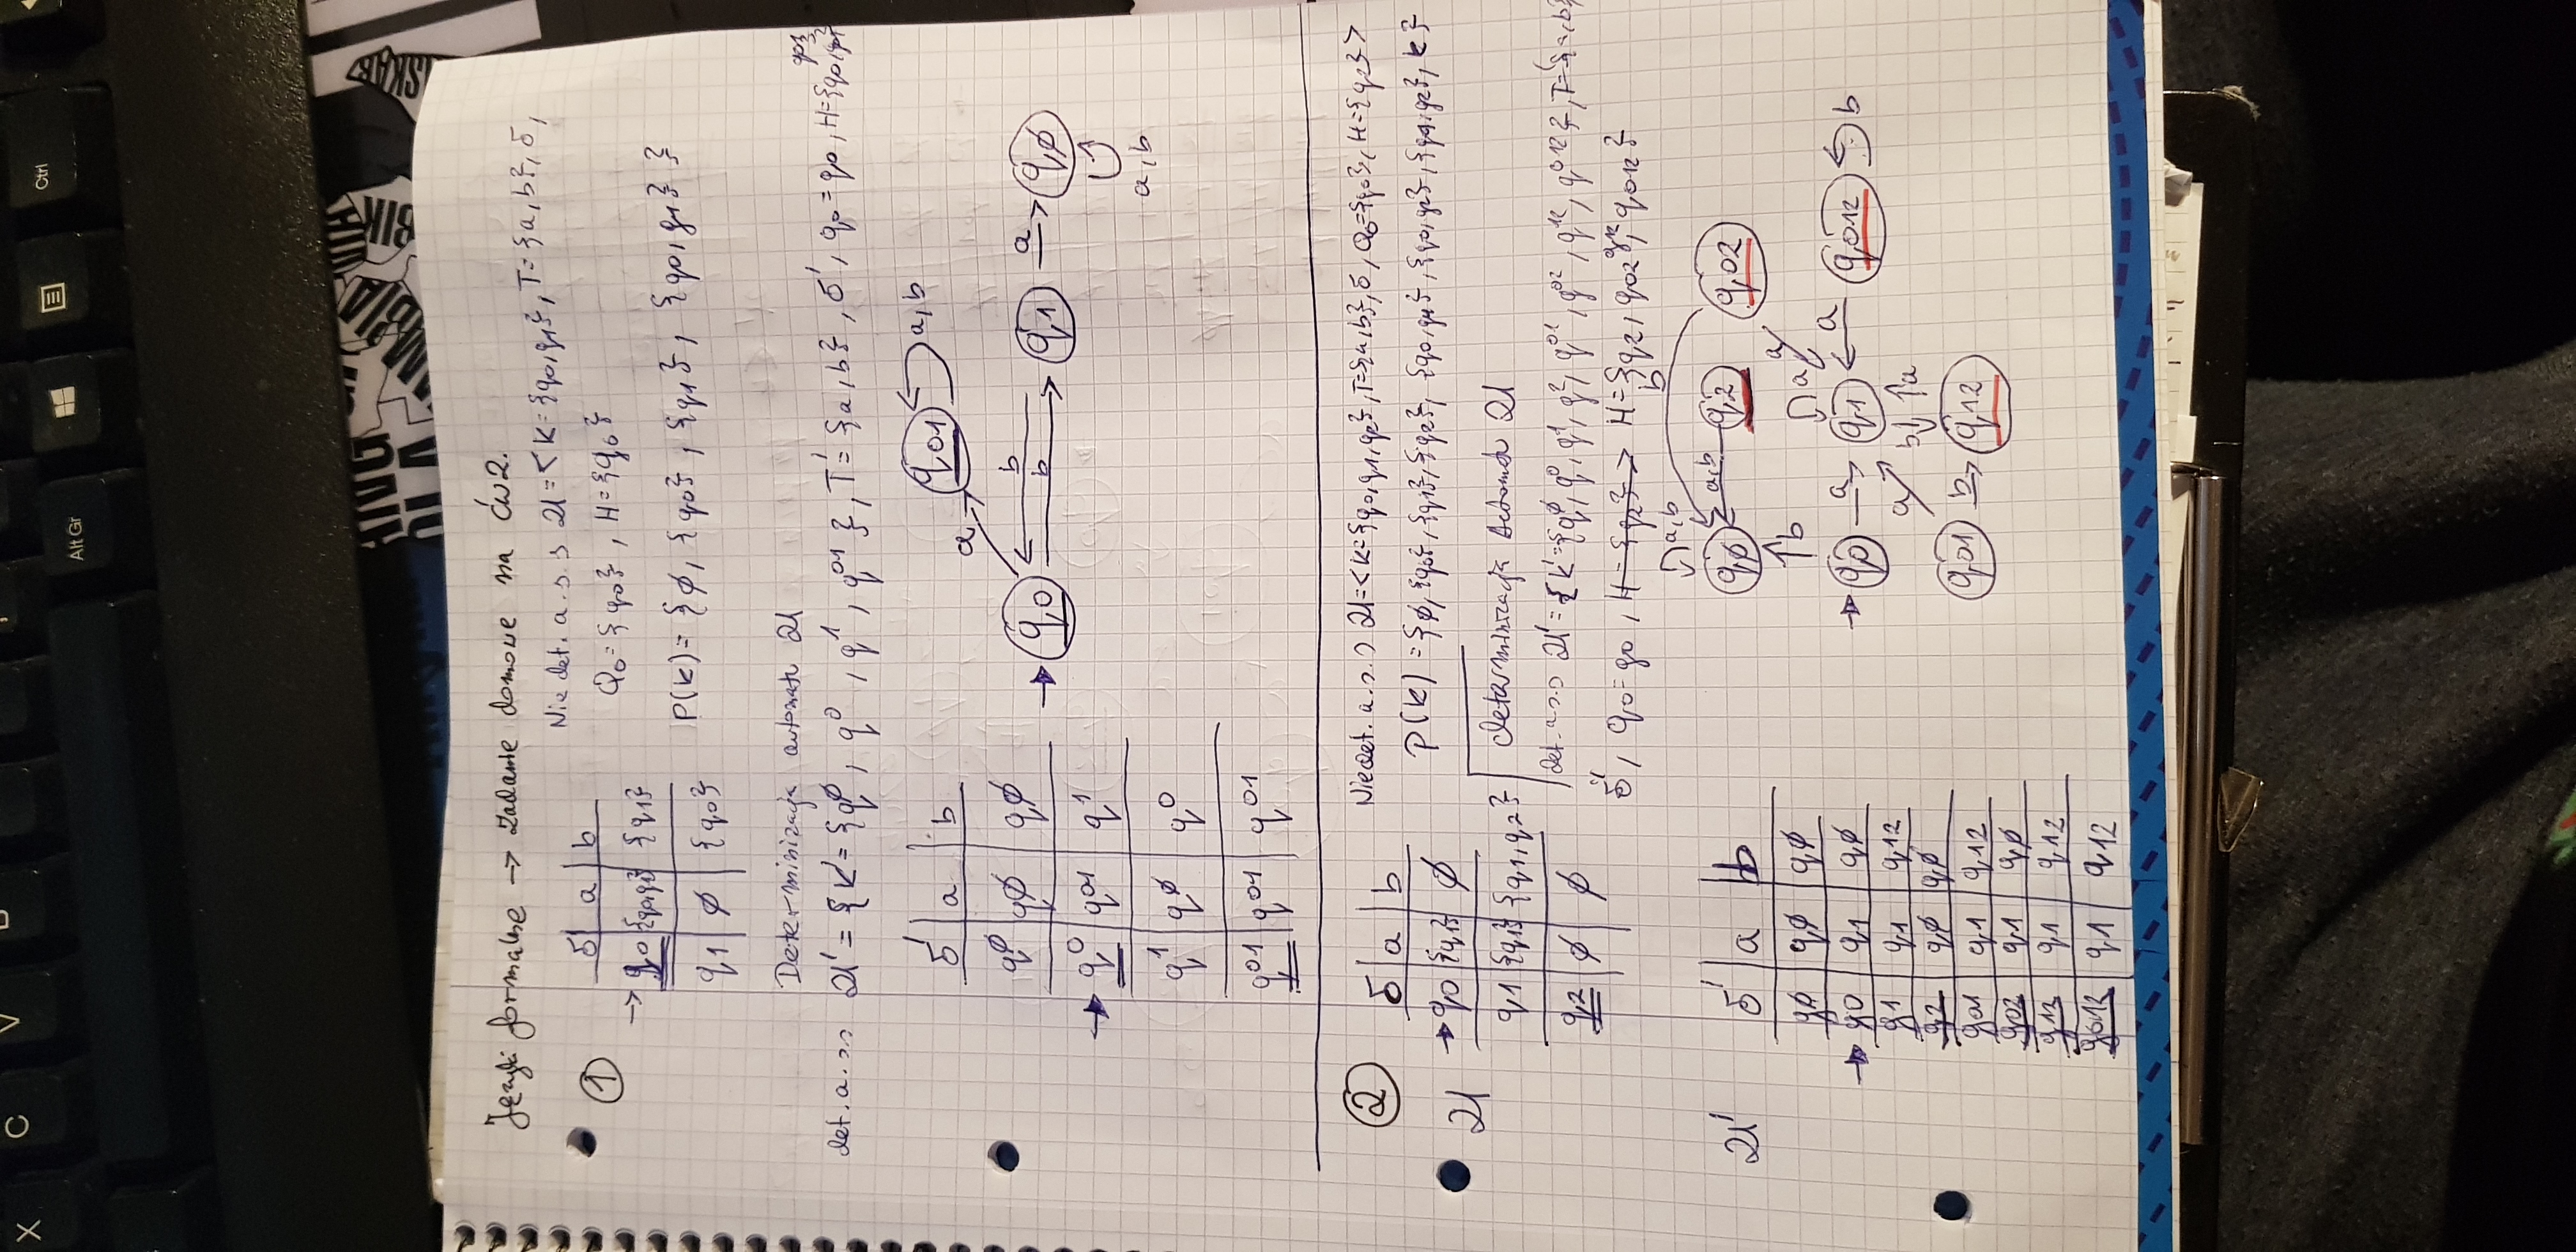 X C V
Alt Gr
Ctrl
AMBIA
Języki formalne → zadanie domowe na ćw 2.
Nie det. a.s.s 𝔄 = < K = {q0, q1}, T = {a, b}, δ,
Q0 = {q0}, H = {q0}
①
δ | a | b
→ q0 | {q0,q1} | {q1}
q1 | ∅ | {q0}
P(K) = {∅, {q0}, {q1}, {q0, q1} }
Determinizacja automatu 𝔄
det. a.s.s 𝔄' = { K' = {q^∅, q^0, q^1, q^01 }, T' = {a, b}, δ', q0 = q0, H = {q0, q01}
δ' | a | b
q^∅ | q^∅ | q^∅
→ q^0 | q^01 | q^1
q^1 | q^∅ | q^0
q^01 | q^01 | q^01
q01 a, b
a
→ q0 b b q1 a → q∅
a, b
②
Niedet. a.s.s 𝔄 = < K = {q0, q1, q2}, T = {a, b}, δ, Q0 = {q0}, H = {q2} >
P(K) = {∅, {q0}, {q1}, {q2}, {q0, q1}, {q0, q2}, {q1, q2}, K}
𝔄
δ | a | b
→ q0 | {q1} | ∅
q1 | {q1} | {q1, q2}
q2 | ∅ | ∅
determinizacja automatu 𝔄
det. a.s.s 𝔄' = { K' = {q^∅, q^0, q^1, q^2, q^01, q^02, q^12, q^012}, T' = {a, b}
δ', q0 = q0, H = {q2} > H = {q2, q02, q12, q012}
𝔄'
δ' | a | b
q∅ | q∅ | q∅
→ q0 | q1 | q∅
q1 | q1 | q12
q2 | q∅ | q∅
q01 | q1 | q12
q02 | q1 | q∅
q12 | q1 | q12
q012 | q1 | q12
a, b b
q∅ a, b q2 q02
b a a
→ q0 a → q1 a q012 b
a b a
q01 b → q12